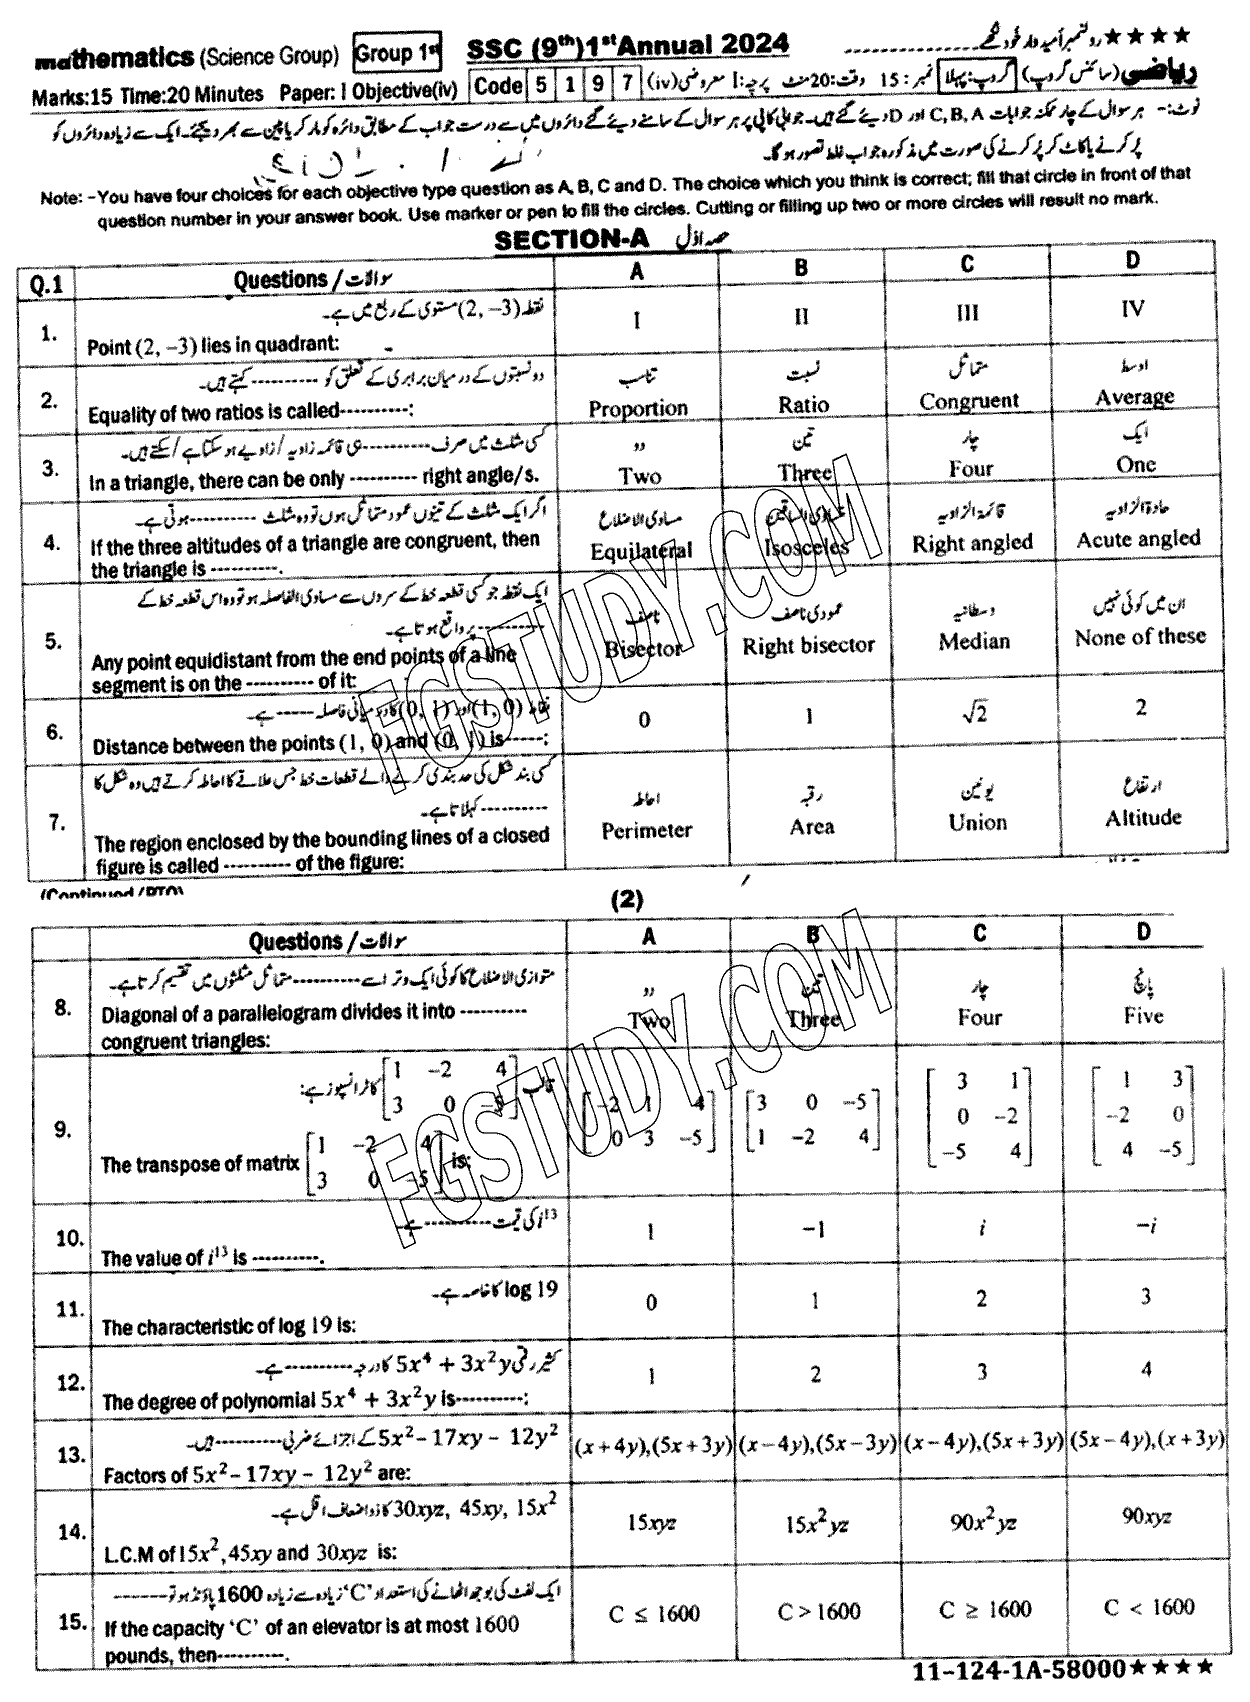 mathematics (Science Group) Group 1st SSC (9th)1st Annual 2024 ★★★★ رولنمبر امیدوار خود لکھے
Marks:15 Time:20 Minutes Paper: I Objective(iv) Code 5 1 9 7 ریاضی (سائنس گروپ) گروپ: پہلا نمبر: 15 وقت: 20 منٹ پرچہ: I معروضی (iv)
نوٹ:- ہر سوال کے چار ممکنہ جوابات C, B, A اور D دیئے گئے ہیں۔ جوابی کاپی پر ہر سوال کے سامنے دیئے گئے دائروں میں سے درست جواب کے مطابق دائرہ کو مارکر یا پین سے بھر دیجئے۔ ایک سے زیادہ دائروں کو
پُر کرنے یا کاٹ کر پُر کرنے کی صورت میں مذکورہ جواب غلط تصور ہوگا۔
Note: -You have four choices for each objective type question as A, B, C and D. The choice which you think is correct; fill that circle in front of that
question number in your answer book. Use marker or pen to fill the circles. Cutting or filling up two or more circles will result no mark.
SECTION-A حصہ اوّل
Q.1 Questions / سوالات A B C D
نقطہ (2, −3) مستوی کے ربع میں ہے۔
1. Point (2, −3) lies in quadrant: I II III IV
دو نسبتوں کے درمیان برابری کے تعلق کو ---------- کہتے ہیں۔ تناسب نسبت متماثل اوسط
2. Equality of two ratios is called----------: Proportion Ratio Congruent Average
کسی مثلث میں صرف ---------- ہی قائمہ زاویہ/زاویے ہو سکتا ہے/سکتے ہیں۔ دو تین چار ایک
3. In a triangle, there can be only ---------- right angle/s. Two Three Four One
اگر ایک مثلث کے تینوں عمود متماثل ہوں تو وہ مثلث ---------- ہوتی ہے۔ مساوی الاضلاع مساوی الساقین قائمۃ الزاویہ حادۃ الزاویہ
4. If the three altitudes of a triangle are congruent, then
the triangle is ----------. Equilateral Isosceles Right angled Acute angled
ایک نقطہ جو کسی قطعہ خط کے سروں سے مساوی الفاصلہ ہو تو وہ اس قطعہ خط کے
---------- پر واقع ہوتا ہے۔ ناصف عمودی ناصف وسطانیہ ان میں کوئی نہیں
5. Any point equidistant from the end points of a line
segment is on the ---------- of it: Bisector Right bisector Median None of these
نقاط (1, 0) اور (0, 1) کا درمیانی فاصلہ ----- ہے۔
6. Distance between the points (1, 0) and (0, 1) is-----: 0 1 √2 2
کسی بند شکل کی حد بندی کرنے والے قطعات خط جس علاقے کا احاطہ کرتے ہیں وہ شکل کا
---------- کہلاتا ہے۔ احاطہ رقبہ یونین ارتفاع
7. The region enclosed by the bounding lines of a closed
figure is called ---------- of the figure: Perimeter Area Union Altitude
(Continued / PTO)
(2)
Questions / سوالات A B C D
متوازی الاضلاع کا کوئی ایک وتر اسے ---------- متماثل مثلثوں میں تقسیم کرتا ہے۔ دو تین چار پانچ
8. Diagonal of a parallelogram divides it into ----------
congruent triangles: Two Three Four Five
قالب [1 −2 4; 3 0 −5] کا ٹرانسپوز ہے:
9. The transpose of matrix [1 −2 4; 3 0 −5] is: [−2 1 4; 0 3 −5] [3 0 −5; 1 −2 4] [3 1; 0 −2; −5 4] [1 3; −2 0; 4 −5]
i¹³ کی قیمت ---------- ہے۔
10. The value of i¹³ is ----------. 1 −1 i −i
log 19 کا خاصہ ہے۔
11. The characteristic of log 19 is: 0 1 2 3
کثیر رقمی 5x⁴ + 3x²y کا درجہ ---------- ہے۔
12. The degree of polynomial 5x⁴ + 3x²y is----------: 1 2 3 4
5x² − 17xy − 12y² کے اجزائے ضربی ---------- ہیں۔
13. Factors of 5x² − 17xy − 12y² are: (x + 4y), (5x + 3y) (x − 4y), (5x − 3y) (x − 4y), (5x + 3y) (5x − 4y), (x + 3y)
30xyz, 45xy, 15x² کا ذواضعاف اقل ہے۔
14. L.C.M of 15x², 45xy and 30xyz is: 15xyz 15x²yz 90x²yz 90xyz
ایک لفٹ کی بوجھ اٹھانے کی استعداد 'C' زیادہ سے زیادہ 1600 پاؤنڈ ہو تو ------
15. If the capacity 'C' of an elevator is at most 1600
pounds, then----------. C ≤ 1600 C > 1600 C ≥ 1600 C < 1600
11-124-1A-58000★★★★
FGSTUDY.COM
FGSTUDY.COM